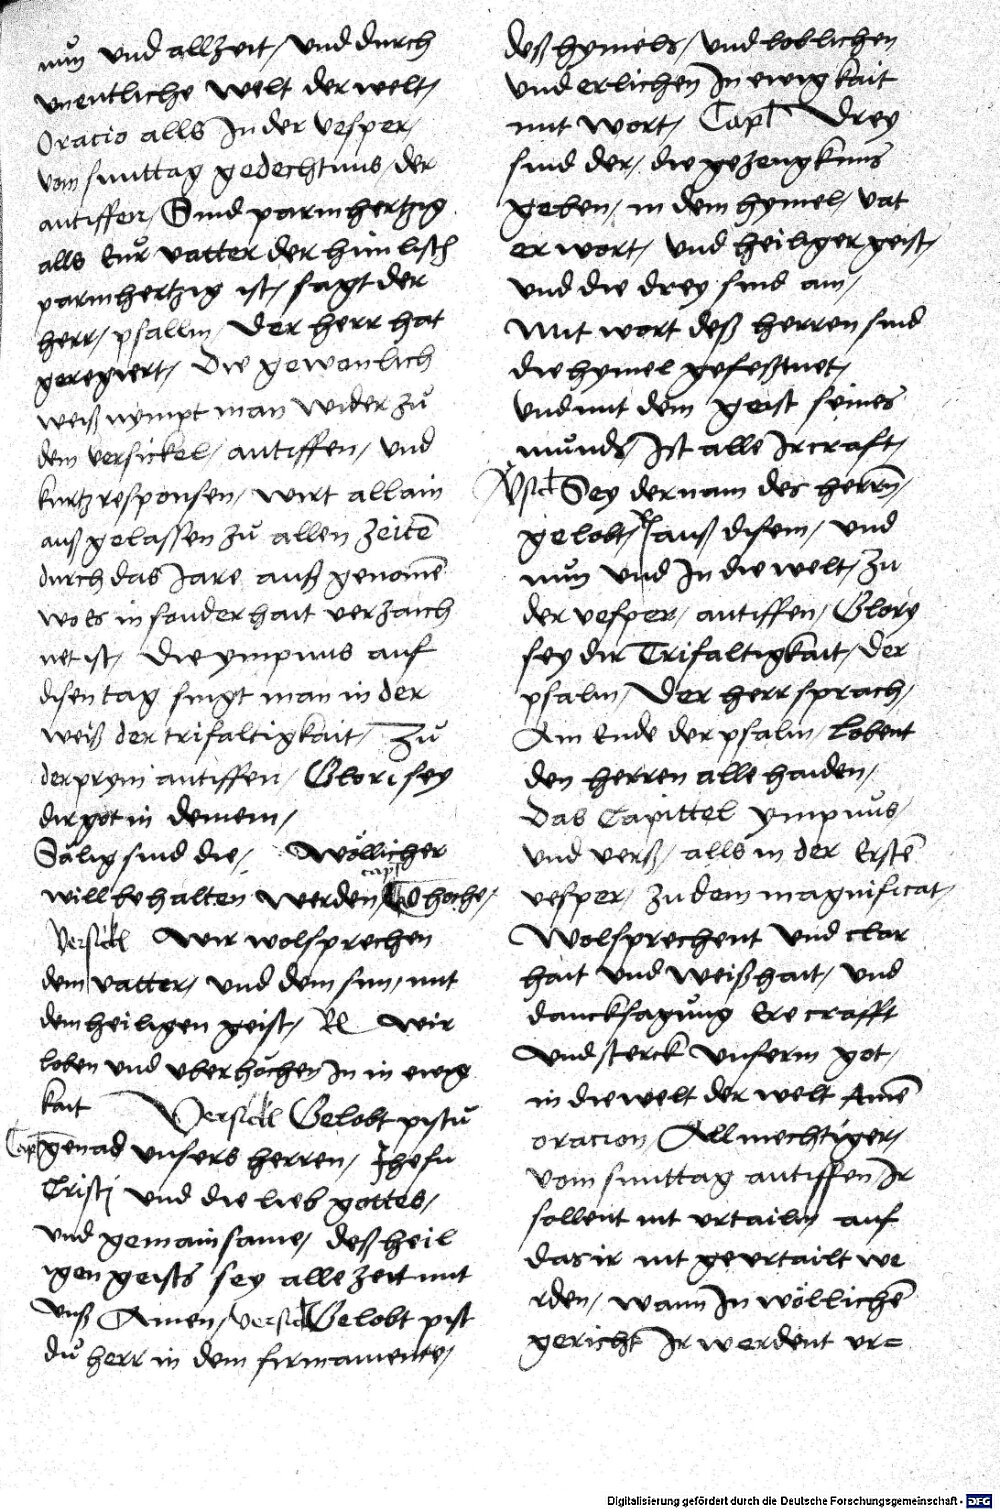 nun und allzeit / und durch
unentliche welt der welt /
Oracio alls In der vesper /
vom sunttag gedechtnus / der
antiffen / Sind parmhertzig
alls eur vatter der himlisch
parmhertzig ist / sagt der
herr / psallm / Der herr hat
geregiert / Die gewonlich
weiß nympt man wider zů
dem versickel / antiffen / und
kurtz responsen / wirt allain
auß gelassen zů allen zeitē
durch das Jare auß genomē
wo es in sonderhait verzaich
net ist / Die ympnus auf
disen tag singt man in der
weiß der trifaltigkait / Zů
der prym antiffen / Glori sey
dir got in demem /
Sälig sind die / Wöllicher
will behalten werden / capl O hoche /
Versickl Wir wolsprechen
dem vatter / und dem sun / mit
dem heiligen geist / Rl Wir
loben und uberhöchen In in ewig
kait Versickl Gelobt pistů
Capl genad unsers herren / Jhesu
Cristi und die lieb gottes /
und gemainsame / deß heil
igen geists sey alle zeit mit
unß Amen / versickl Gelobt pist
dů herr in dem firmamente /
deß hymels / und loblichen
und erlichen In ewigkait
mit wort / Capl Drey
sind der / die gezeugknus
geben / in dem hymel / vat
er wort / und heiliger geist /
und die drey sind ain /
Mit wort deß herren sind
die hymel gefeßtnet /
und mit dem geist seines
munds Ist alle Ir craft /
Vsickl Sey der nam des herrn /
gelobt / Rl auß disem / und
nun und In die welt / Zu
der vesper / antiffen / Glory
sey dir Trifaltigkait / Der
psalm / Der herr sprach /
Am Ende der psalm / Lobent
den herren alle haiden /
Das Capittel ympnůs /
und verß / alls in der Erstē
vesper / zu dem magnificat /
Wolsprechent und clar
hait und weißhait / und
dancksagung Ere crafft
und sterck unserm got /
in die welt der welt Amē
oracion / Allmechtiger /
vom sunttag antiffen / Ir
sollent nit urtailn auf
das ir nit geurtailt we
rden / wann In wöllichē
gericht Ir werdent ur=
Digitalisierung gefördert durch die Deutsche Forschungsgemeinschaft - DFG